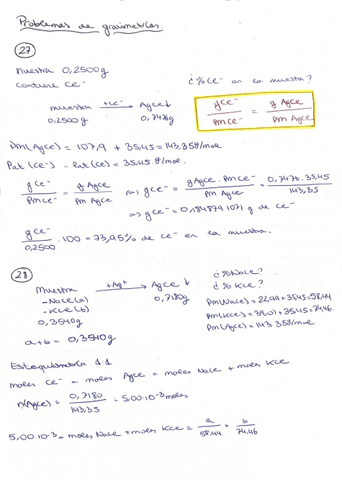 Problemas de gravimetrías.
27
Muestra 0,2500g
Contiene Cl⁻
¿% Cl⁻ en la muestra?
muestra +Cl⁻ → AgCl↓
0,2500g 0,7476g
g Cl⁻ / Pm Cl⁻ = g AgCl / Pm AgCl
Pm(AgCl) = 107,9 + 35,45 = 143,35 g/mol
Pat(Cl⁻) = Pat(Cl) = 35,45 g/mol.
g Cl⁻ / Pm Cl⁻ = g AgCl / Pm AgCl ⇒ g Cl⁻ = g AgCl · Pm Cl⁻ / Pm AgCl = 0,7476 · 35,45 / 143,35
⇒ g Cl⁻ = 0,184879 1071 g de Cl⁻
g Cl⁻ / 0,2500 · 100 = 73,95% de Cl⁻ en la muestra.
28
Muestra +Ag⁺ → AgCl↓
- NaCl (a) 0,7180g
- KCl (b)
0,3540g
a + b = 0,3540g
¿% NaCl?
¿% KCl?
Pm(NaCl) = 22,99 + 35,45 = 58,44
Pm(KCl) = 39,01 + 35,45 = 74,46
Pm(AgCl) = 143,35 g/mol
Estequiometría 1:1
moles Cl⁻ = moles AgCl = moles NaCl + moles KCl
n(AgCl) = 0,7180 / 143,35 = 5,00·10⁻³ moles
5,00·10⁻³ = moles NaCl + moles KCl = a / 58,44 + b / 74,46